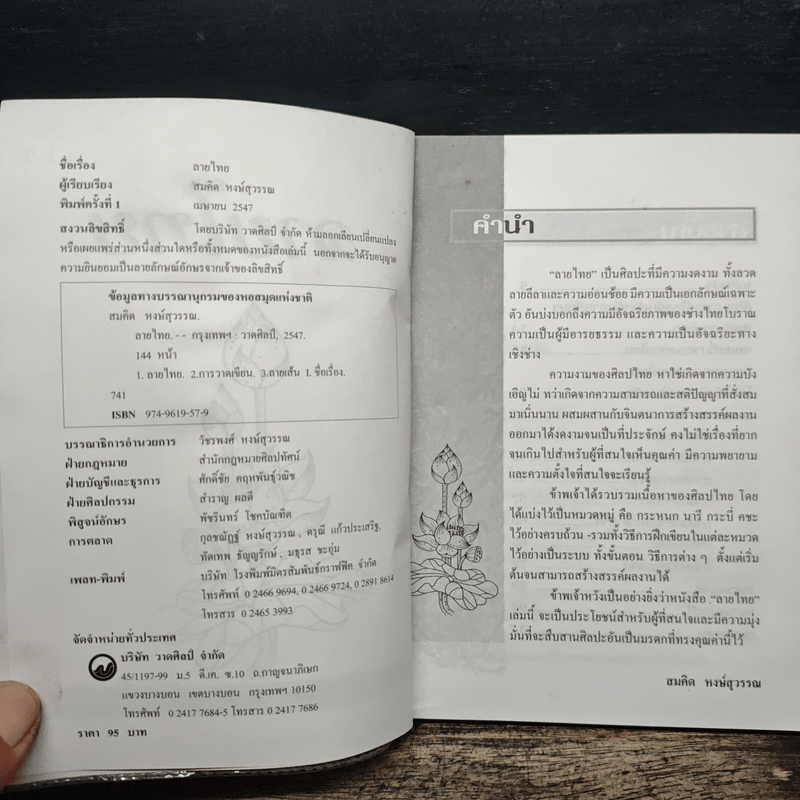 ชื่อเรื่อง ลายไทย
ผู้เรียบเรียง สมคิด หงษ์สุวรรณ
พิมพ์ครั้งที่ 1 เมษายน 2547
สงวนลิขสิทธิ์ โดยบริษัท วาดศิลป์ จำกัด ห้ามลอกเลียนเปลี่ยนแปลง
หรือเผยแพร่ส่วนหนึ่งส่วนใดหรือทั้งหมดของหนังสือเล่มนี้ นอกจากจะได้รับอนุญาต
ความยินยอมเป็นลายลักษณ์อักษรจากเจ้าของลิขสิทธิ์
ข้อมูลทางบรรณานุกรมของหอสมุดแห่งชาติ
สมคิด หงษ์สุวรรณ.
ลายไทย. -- กรุงเทพฯ : วาดศิลป์, 2547.
144 หน้า
1. ลายไทย. 2.การวาดเขียน. 3.ลายเส้น I. ชื่อเรื่อง.
741
ISBN 974-9619-57-9
บรรณาธิการอำนวยการ วัชรพงศ์ หงษ์สุวรรณ
ฝ่ายกฎหมาย สำนักกฎหมายศิลปทัศน์
ฝ่ายบัญชีและธุรการ ศักดิ์ชัย คฤหพันธุ์วณิช
ฝ่ายศิลปกรรม สำราญ ผลดี
พิสูจน์อักษร พัชรินทร์ โชคบัณฑิต
การตลาด กุลชณัฏฐ์ หงษ์สุวรรณ, ดรุณี แก้วประเสริฐ,
ทัตเทพ ธัญญรักษ์, มธุรส ชะอุ่ม
เพลท-พิมพ์ บริษัท โรงพิมพ์มิตรสัมพันธ์กราฟฟิค จำกัด
โทรศัพท์ 0 2466 9694, 0 2466 9724, 0 2891 8614
โทรสาร 0 2465 3993
จัดจำหน่ายทั่วประเทศ
บริษัท วาดศิลป์ จำกัด
45/1197-99 ม.5 ดี.เค. ซ.10 ถ.กาญจนาภิเษก
แขวงบางบอน เขตบางบอน กรุงเทพฯ 10150
โทรศัพท์ 0 2417 7684-5 โทรสาร 0 2417 7686
ราคา 95 บาท
คำนำ
"ลายไทย" เป็นศิลปะที่มีความงดงาม ทั้งลวด
ลายลีลาและความอ่อนช้อย มีความเป็นเอกลักษณ์เฉพาะ
ตัว อันบ่งบอกถึงความมีอัจฉริยภาพของช่างไทยโบราณ
ความเป็นผู้มีอารยธรรม และความเป็นอัจฉริยะทาง
เชิงช่าง
ความงามของศิลปไทย หาใช่เกิดจากความบัง
เอิญไม่ ทว่าเกิดจากความสามารถและสติปัญญาที่สั่งสม
มาเนิ่นนาน ผสมผสานกับจินตนาการสร้างสรรค์ผลงาน
ออกมาได้งดงามจนเป็นที่ประจักษ์ คงไม่ใช่เรื่องที่ยาก
จนเกินไปสำหรับผู้ที่สนใจเห็นคุณค่า มีความพยายาม
และความตั้งใจที่สนใจจะเรียนรู้
ข้าพเจ้าได้รวบรวมเนื้อหาของศิลปไทย โดย
ได้แบ่งไว้เป็นหมวดหมู่ คือ กระหนก นารี กระบี่ คชะ
ไว้อย่างครบถ้วน -รวมทั้งวิธีการฝึกเขียนในแต่ละหมวด
ไว้อย่างเป็นระบบ ทั้งขั้นตอน วิธีการต่าง ๆ ตั้งแต่เริ่ม
ต้นจนสามารถสร้างสรรค์ผลงานได้
ข้าพเจ้าหวังเป็นอย่างยิ่งว่าหนังสือ "ลายไทย"
เล่มนี้ จะเป็นประโยชน์สำหรับผู้ที่สนใจและมีความมุ่ง
มั่นที่จะสืบสานศิลปะอันเป็นมรดกที่ทรงคุณค่านี้ไว้
สมคิด หงษ์สุวรรณ